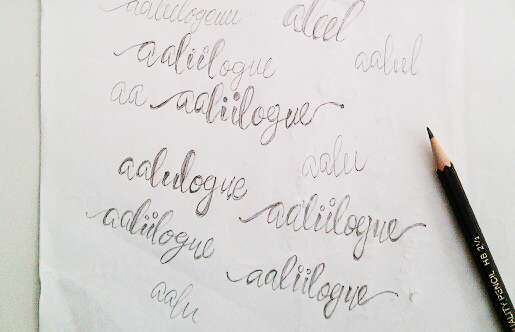 aalulogeuu
alul
aaliilogue
aalul
aa aaliilogue
aalu
aalulogue
aaliilogue
aaliilogue
aaliilogue
aalu
QUALITY PENCIL HB 2½